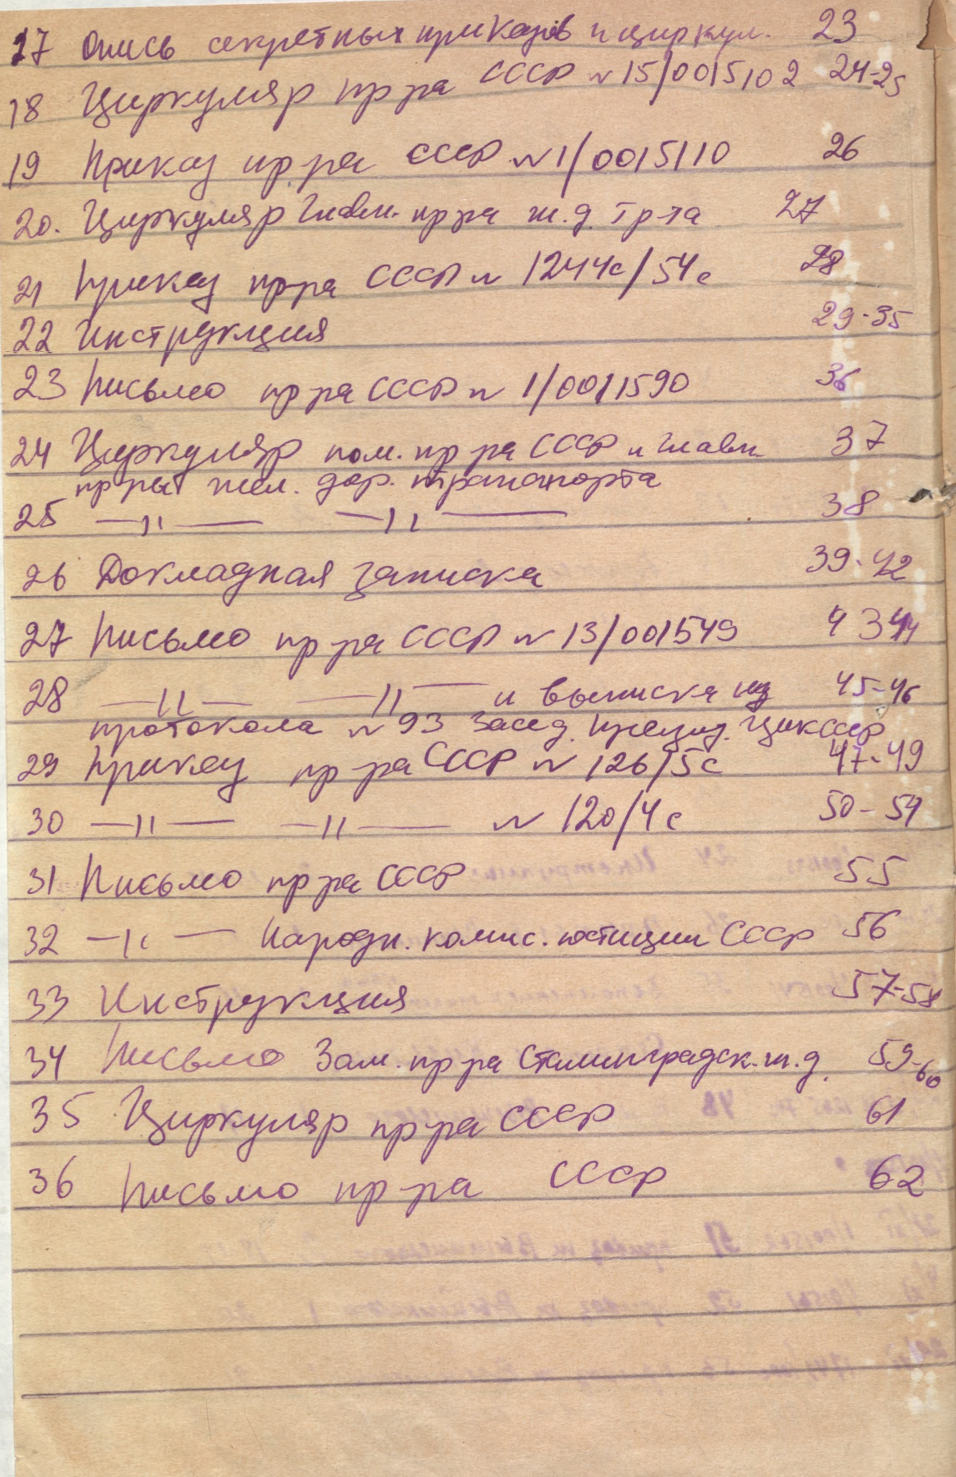 17 Опись секретных приказов и циркул. 23
18 Циркуляр пр-ра СССР № 15/0015102 24-25
19 Приказ пр-ра СССР № 1/0015110 26
20. Циркуляр Главн. пр-ра ж.д. тр-та 27
21 Приказ пр-ра СССР № 1244с/54с 28
22 Инструкция 29-35
23 Письмо пр-ра СССР № 1/001590 36
24 Циркуляр пом. пр-ра СССР и Главн 37
пр-ры жел. дор. транспорта
25 —〃— —〃— 38
26 Докладная записка 39-42
27 Письмо пр-ра СССР № 13/001549 43 44
28 —〃— —〃— и выписка из 45-46
протокола № 93 Засед. Презид. ЦИК СССР
29 Приказ пр-ра СССР № 126/5с 47-49
30 —〃— —〃— № 120/4с 50-54
31 Письмо пр-ра СССР 55
32 —〃— Народн. комис. юстиции СССР 56
33 Инструкция 57-58
34 Письмо Зам. пр-ра Сталинградск. ж.д. 59-60
35 Циркуляр пр-ра СССР 61
36 Письмо пр-ра СССР 62